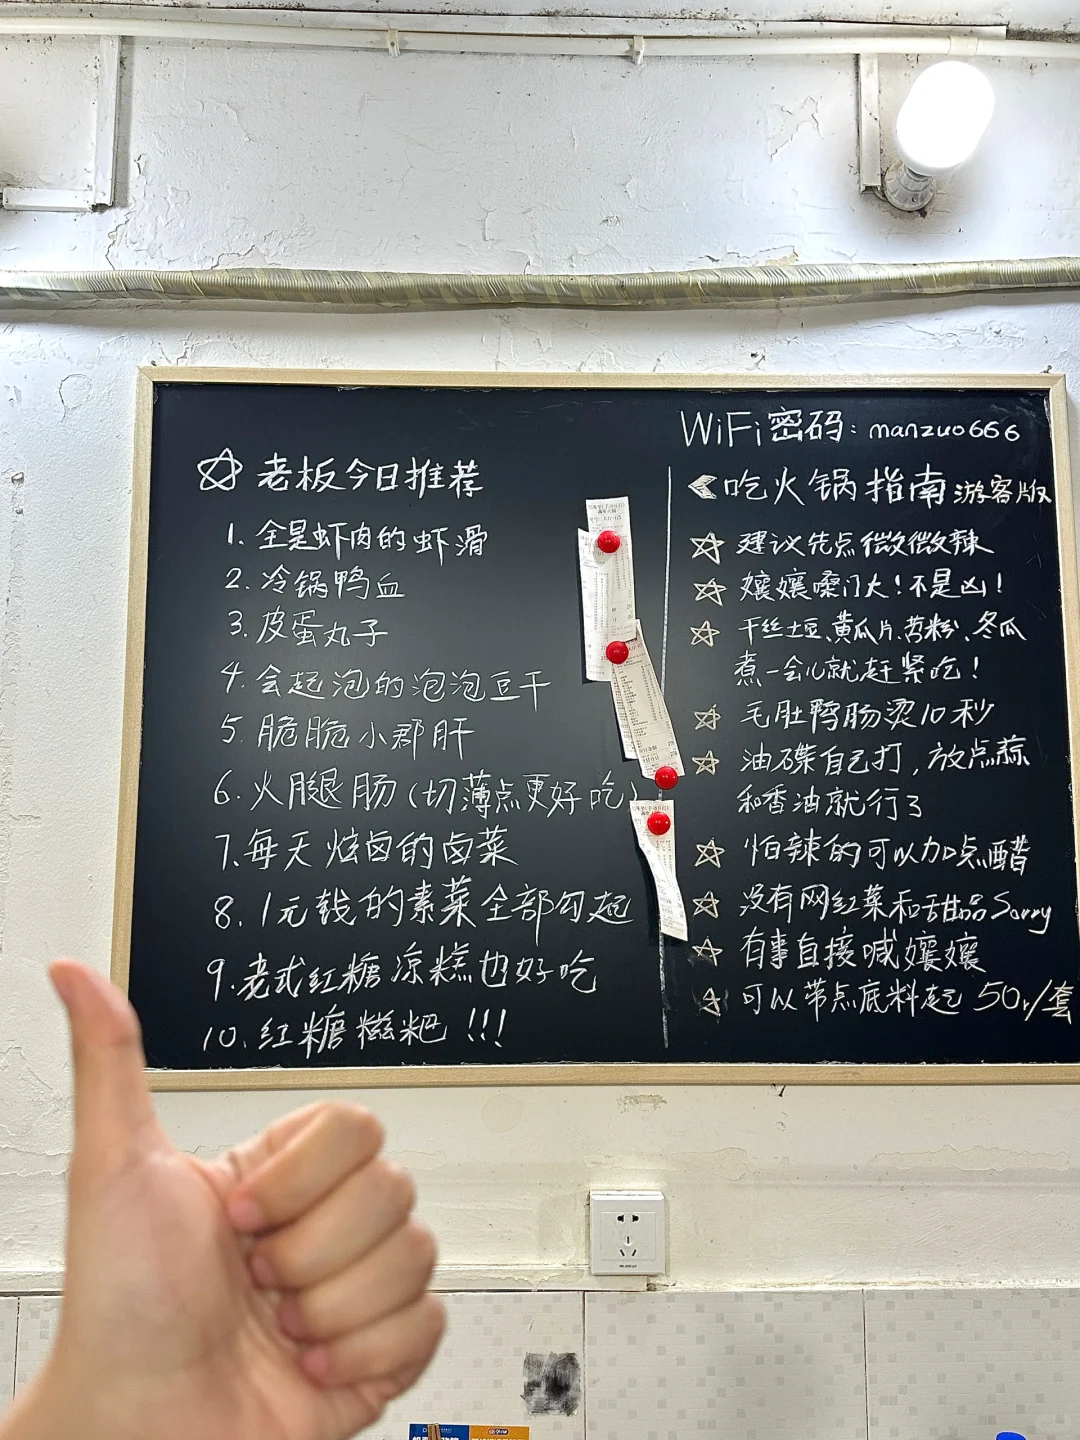 老板今日推荐
1. 全是虾肉的虾滑
2. 冷锅鸭血
3. 皮蛋丸子
4. 会起泡的泡泡豆干
5. 脆脆小郡肝
6. 火腿肠(切薄点更好吃)
7. 每天炫卤的卤菜
8. 1元钱的素菜全部勾起
9. 老式红糖凉糕也好吃
10. 红糖糍粑!!!
WiFi密码: manzuo666
吃火锅指南 游客版
建议先点微微辣
孃孃嗓门大!不是凶!
干丝土豆、黄瓜片、苕粉、冬瓜
煮一会儿就赶紧吃!
毛肚鸭肠烫10秒
油碟自己打,放点蒜
和香油就行了
怕辣的可以加点醋
没有网红菜和甜品Sorry
有事直接喊孃孃
可以带点底料走 50r/套